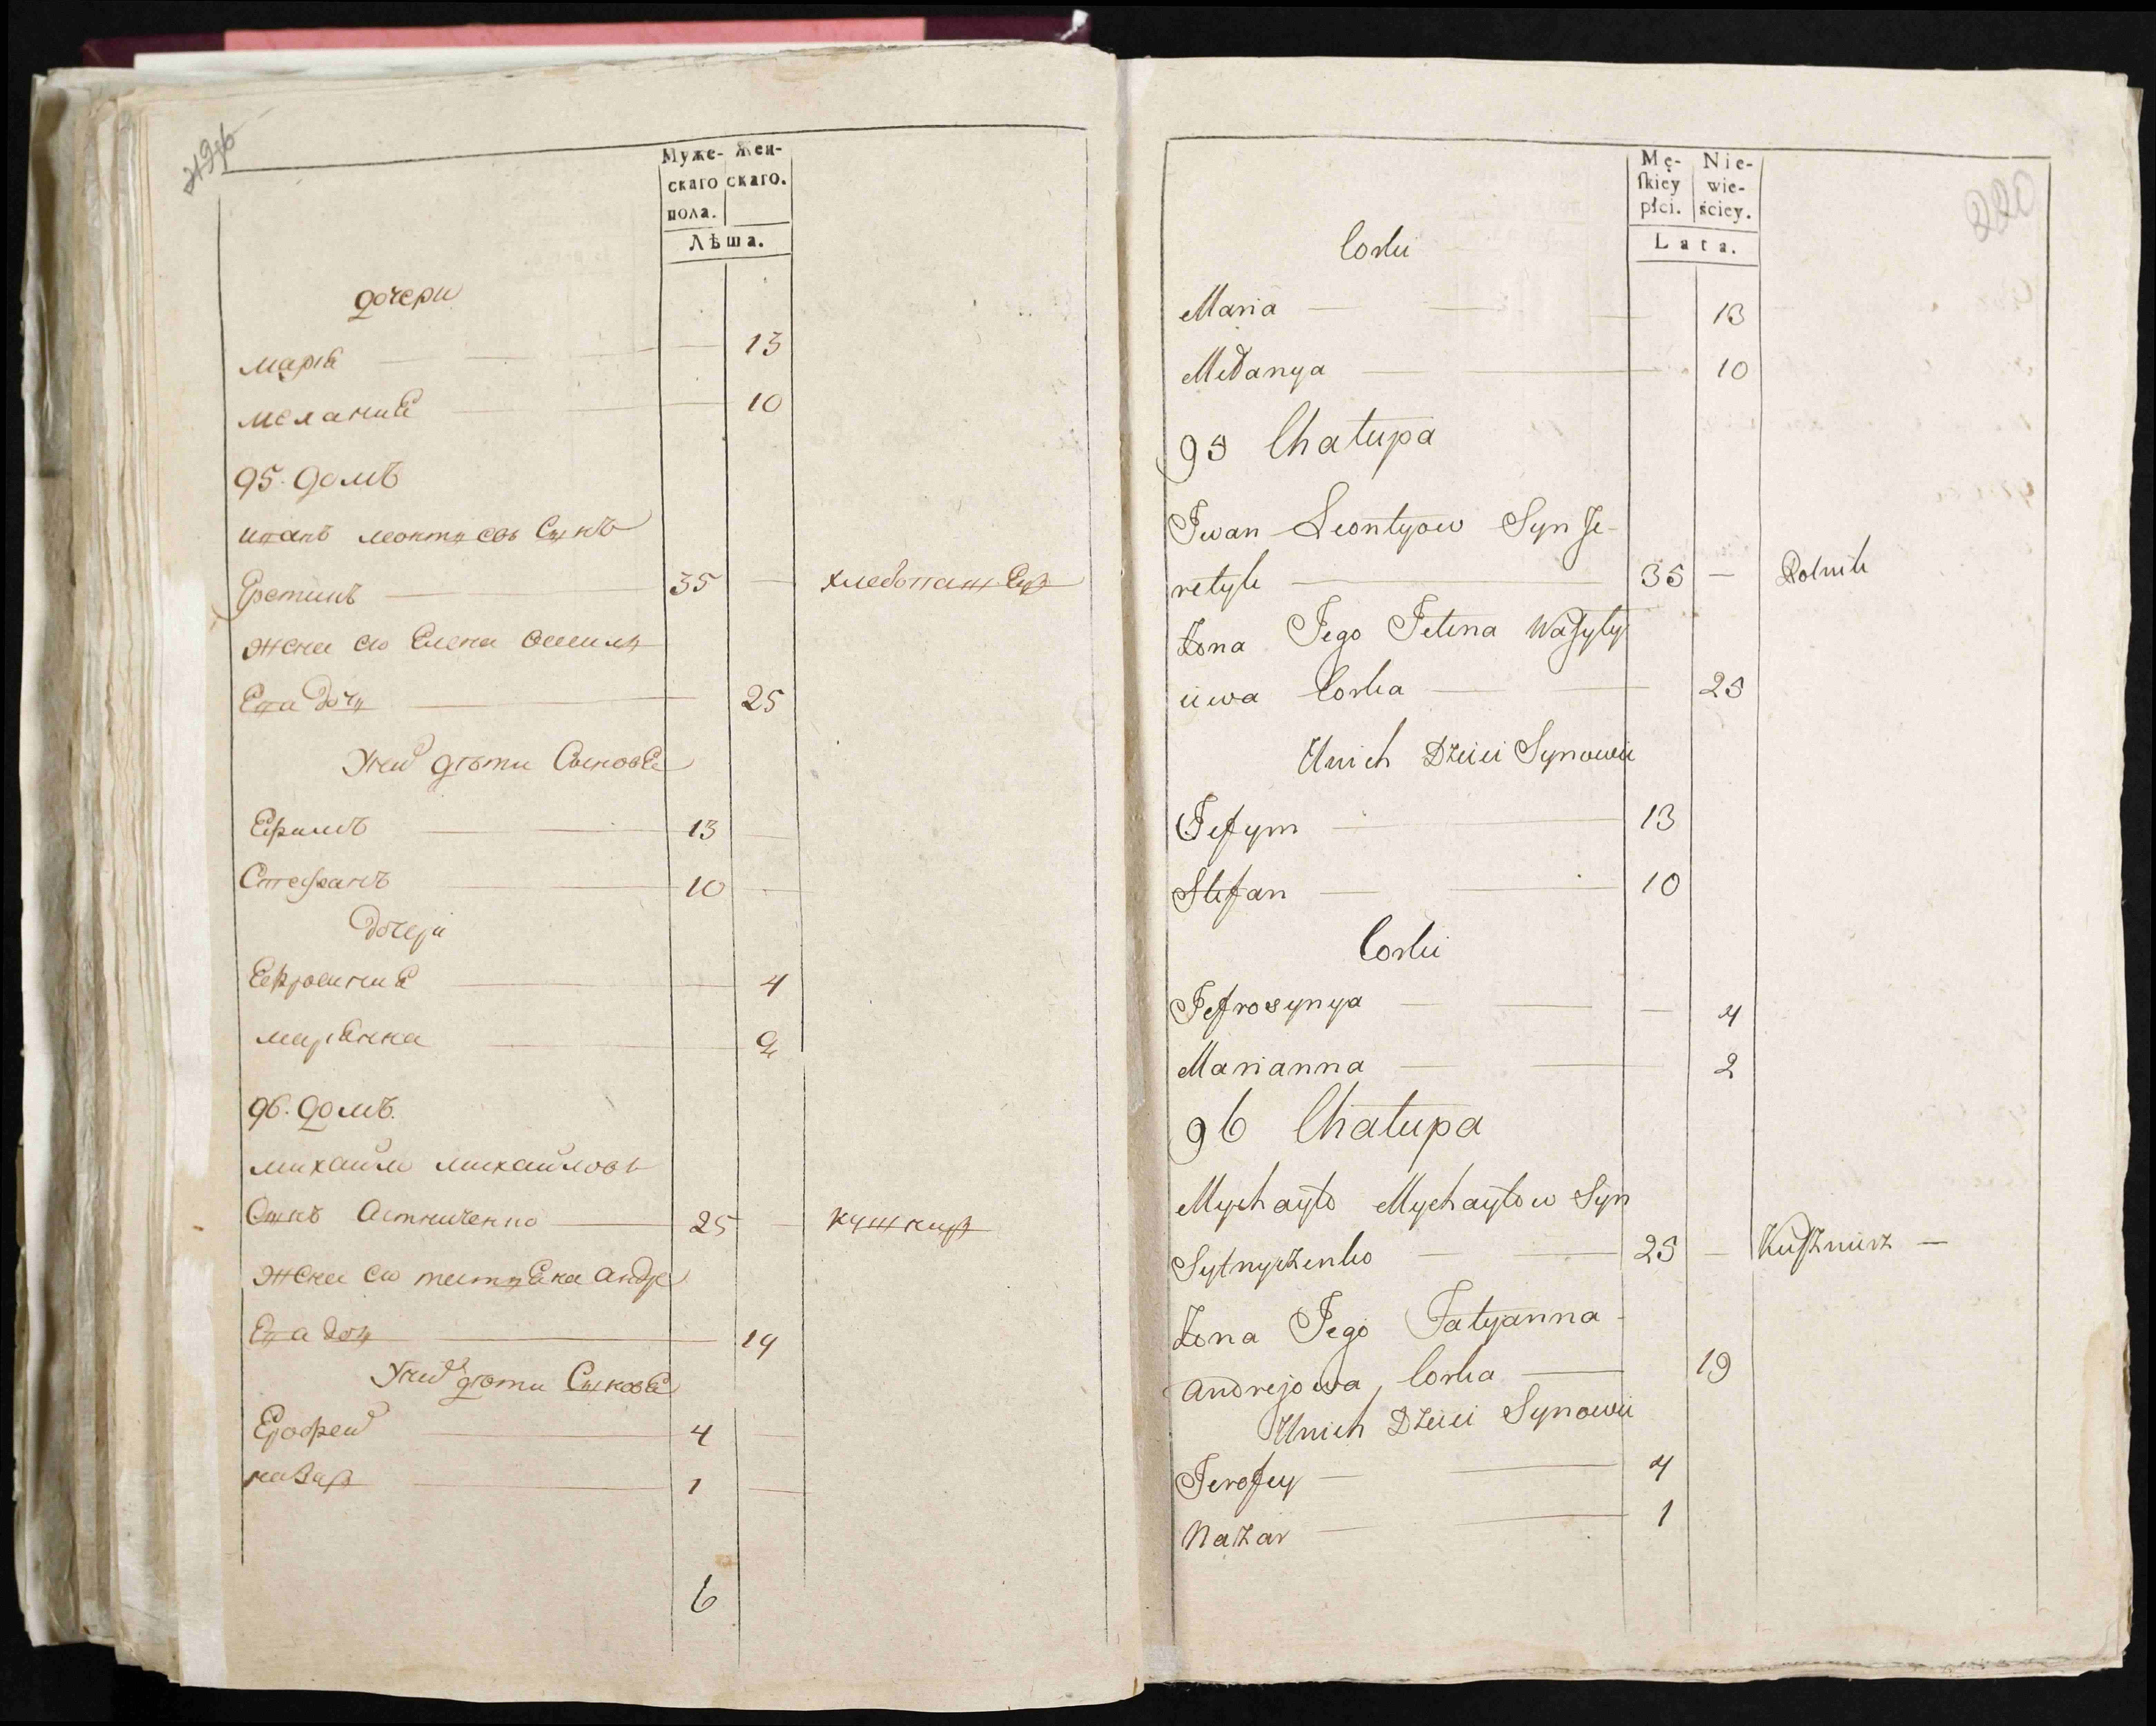 Муже-
скаго
пола.
Жен-
скаго.
Лѣша.
дочери
мария — 13
мелания — 10
95. домъ
иванъ леонтиевъ Сынъ
— 35 — хлебопашецъ
жена его Елена
Ева дочь — 25
У них дѣти Сыновя
Ефимъ — 13 —
Стефанъ — 10 —
дочери
Ефросиния — 4
марянна — 2
96. домъ.
михайло михайловъ
Сынъ — 25 — кушниръ
жена его татияна андре
ева дочь — 19
У них дѣти Сыновя
Ерофей — 4 —
назар — 1 —
6
220
Mę-
ſkiey
płci.
Nie-
wie-
ściey.
Lata.
Corki
Maria — 13
Mełanya — 10
95 Chałupa
Iwan Leontyow Syn Je-
retyk — 35 — Rolnik
Żona Jego Jelena Waſyly
iowa Corka — 25
Unich Dzieci Synowie
Jefym — 13
Stefan — 10
Corki
Jefrosynya — 4
Marianna — 2
96 Chałupa
Mychayło Mychayłow Syn
Sytnyczenko — 25 — Kuſznierz —
Żona Jego Tatyanna
Andrejowa Corka — 19
Unich Dzieci Synowie
Jerofey — 4
Nazar — 1